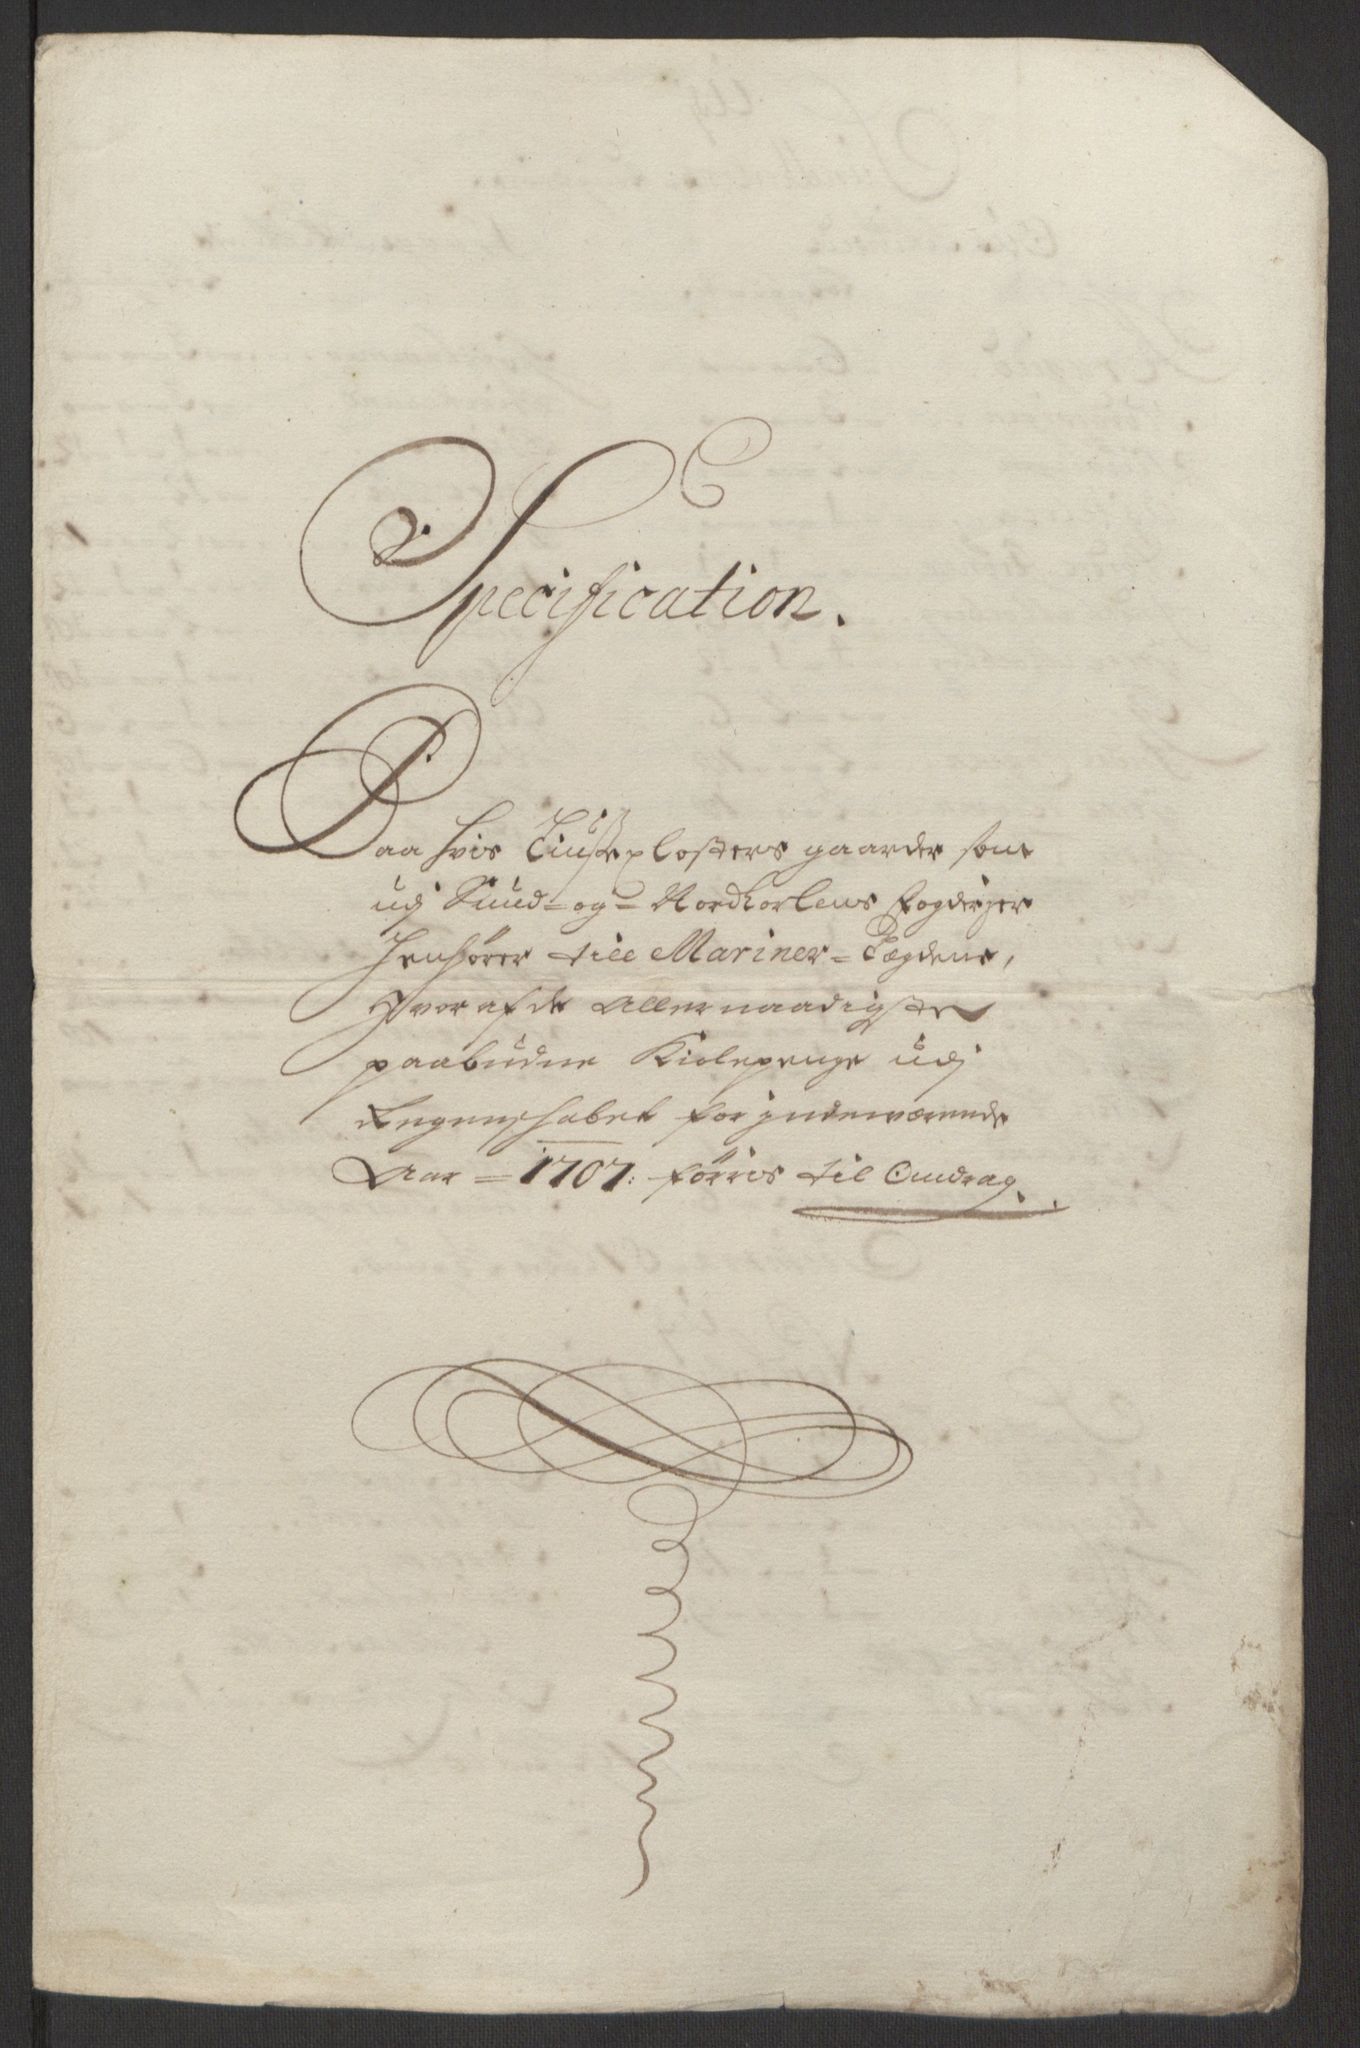 Specification.
Paa hvis Liuseclosters gaarder som
udj Sund- og- Nordhorlens fogderjer
henhører till Mariner- Lægdene,
hvor af de Allernaadigste
paabudne Kiolepenge udj
Regenschabet for jndewærende
Aar - 1707:førris til Omdrag.